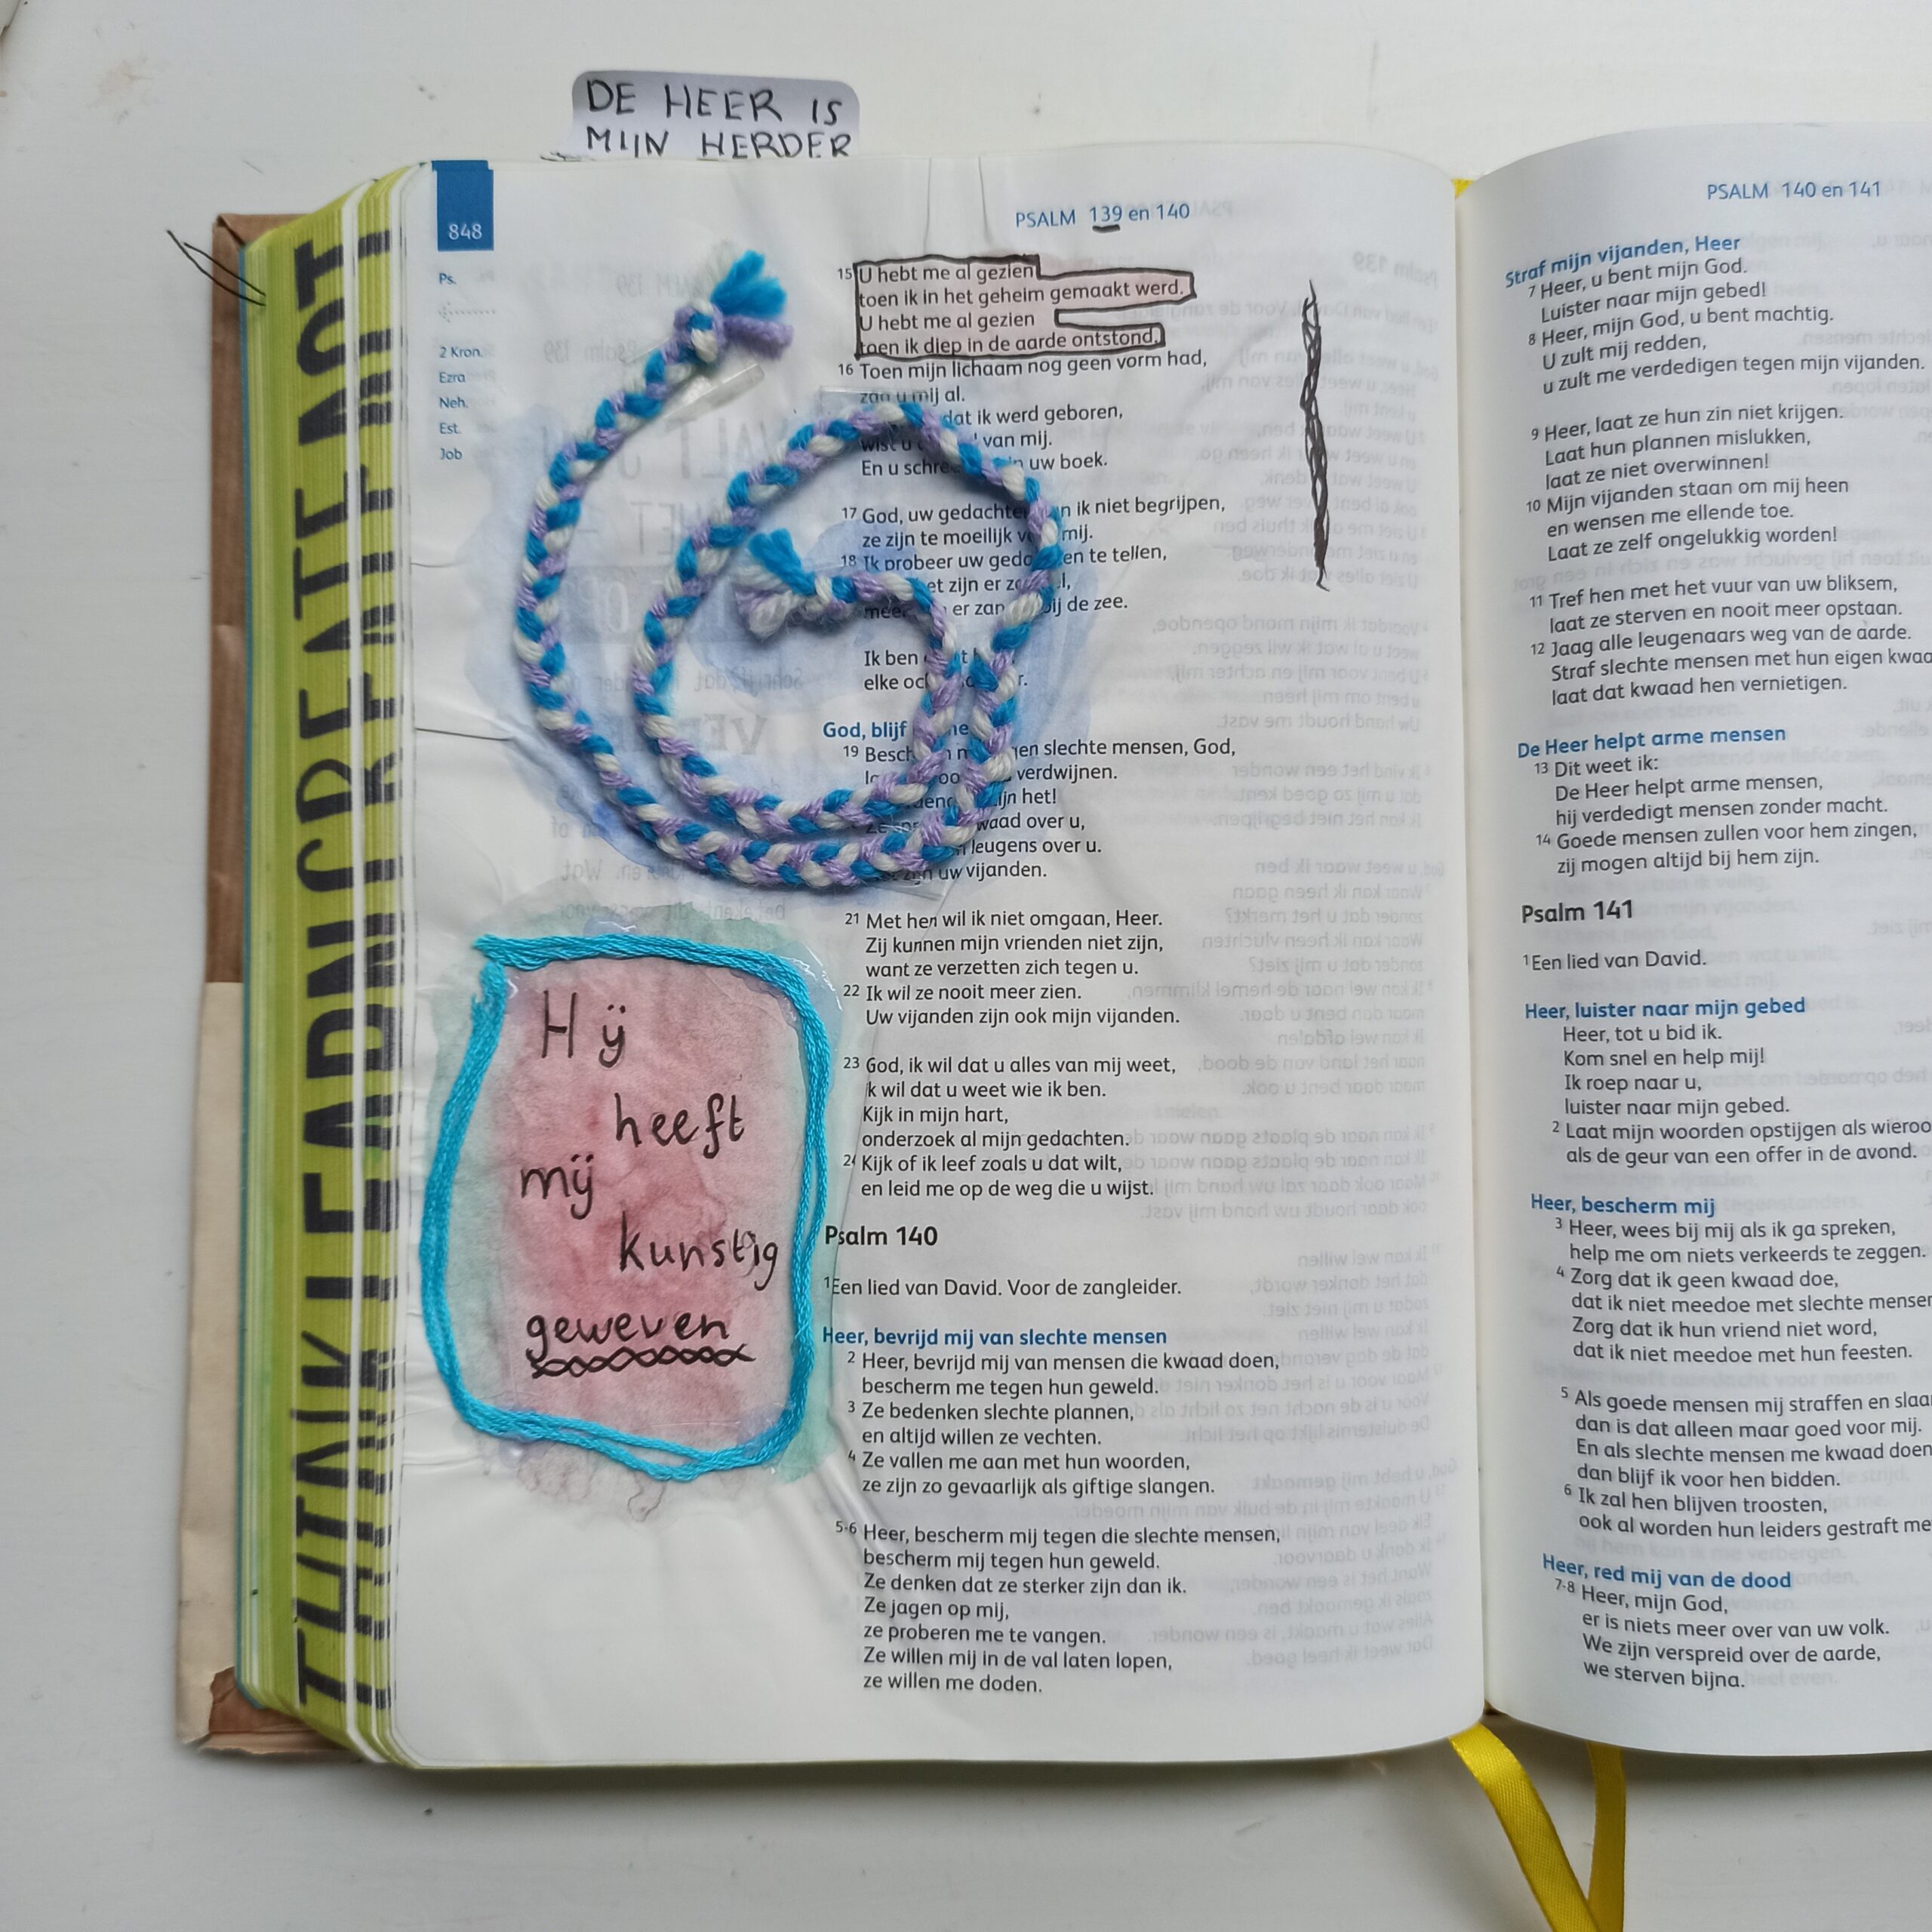 DE HEER IS
MIJN HERDER
THINK LEARN CREATE ACT
848
Ps.
2 Kron.
Ezra
Neh.
Est.
Job
PSALM 139 en 140
15 U hebt me al gezien
toen ik in het geheim gemaakt werd.
U hebt me al gezien
toen ik diep in de aarde ontstond.
16 Toen mijn lichaam nog geen vorm had,
zag u mij al.
dat ik werd geboren,
wist u van mij.
En u uw boek.
17 God, uw ik niet begrijpen,
ze zijn te moeilijk mij.
18 Ik probeer uw te tellen,
zijn er
er bij de zee.
Ik ben
elke
God, blijf
19 slechte mensen, God,
verdwijnen.
het!
kwaad over u,
leugens over u.
uw vijanden.
21 Met hen wil ik niet omgaan, Heer.
Zij kunnen mijn vrienden niet zijn,
want ze verzetten zich tegen u.
22 Ik wil ze nooit meer zien.
Uw vijanden zijn ook mijn vijanden.
23 God, ik wil dat u alles van mij weet,
ik wil dat u weet wie ik ben.
Kijk in mijn hart,
onderzoek al mijn gedachten.
24 Kijk of ik leef zoals u dat wilt,
en leid me op de weg die u wijst.
Psalm 140
1 Een lied van David. Voor de zangleider.
Heer, bevrijd mij van slechte mensen
2 Heer, bevrijd mij van mensen die kwaad doen,
bescherm me tegen hun geweld.
3 Ze bedenken slechte plannen,
en altijd willen ze vechten.
4 Ze vallen me aan met hun woorden,
ze zijn zo gevaarlijk als giftige slangen.
5-6 Heer, bescherm mij tegen die slechte mensen,
bescherm mij tegen hun geweld.
Ze denken dat ze sterker zijn dan ik.
Ze jagen op mij,
ze proberen me te vangen.
Ze willen mij in de val laten lopen,
ze willen me doden.
Hij
heeft
mij
kunstig
geweven
PSALM 140 en 141
Straf mijn vijanden, Heer
7 Heer, u bent mijn God.
Luister naar mijn gebed!
8 Heer, mijn God, u bent machtig.
U zult mij redden,
u zult me verdedigen tegen mijn vijanden.
9 Heer, laat ze hun zin niet krijgen.
Laat hun plannen mislukken,
laat ze niet overwinnen!
10 Mijn vijanden staan om mij heen
en wensen me ellende toe.
Laat ze zelf ongelukkig worden!
11 Tref hen met het vuur van uw bliksem,
laat ze sterven en nooit meer opstaan.
12 Jaag alle leugenaars weg van de aarde.
Straf slechte mensen met hun eigen kwaa
laat dat kwaad hen vernietigen.
De Heer helpt arme mensen
13 Dit weet ik:
De Heer helpt arme mensen,
hij verdedigt mensen zonder macht.
14 Goede mensen zullen voor hem zingen,
zij mogen altijd bij hem zijn.
Psalm 141
1 Een lied van David.
Heer, luister naar mijn gebed
Heer, tot u bid ik.
Kom snel en help mij!
Ik roep naar u,
luister naar mijn gebed.
2 Laat mijn woorden opstijgen als wieroo
als de geur van een offer in de avond.
Heer, bescherm mij
3 Heer, wees bij mij als ik ga spreken,
help me om niets verkeerds te zeggen.
4 Zorg dat ik geen kwaad doe,
dat ik niet meedoe met slechte mensen
Zorg dat ik hun vriend niet word,
dat ik niet meedoe met hun feesten.
5 Als goede mensen mij straffen en slaa
dan is dat alleen maar goed voor mij.
En als slechte mensen me kwaad doen
dan blijf ik voor hen bidden.
6 Ik zal hen blijven troosten,
ook al worden hun leiders gestraft me
Heer, red mij van de dood
7-8 Heer, mijn God,
er is niets meer over van uw volk.
We zijn verspreid over de aarde,
we sterven bijna.